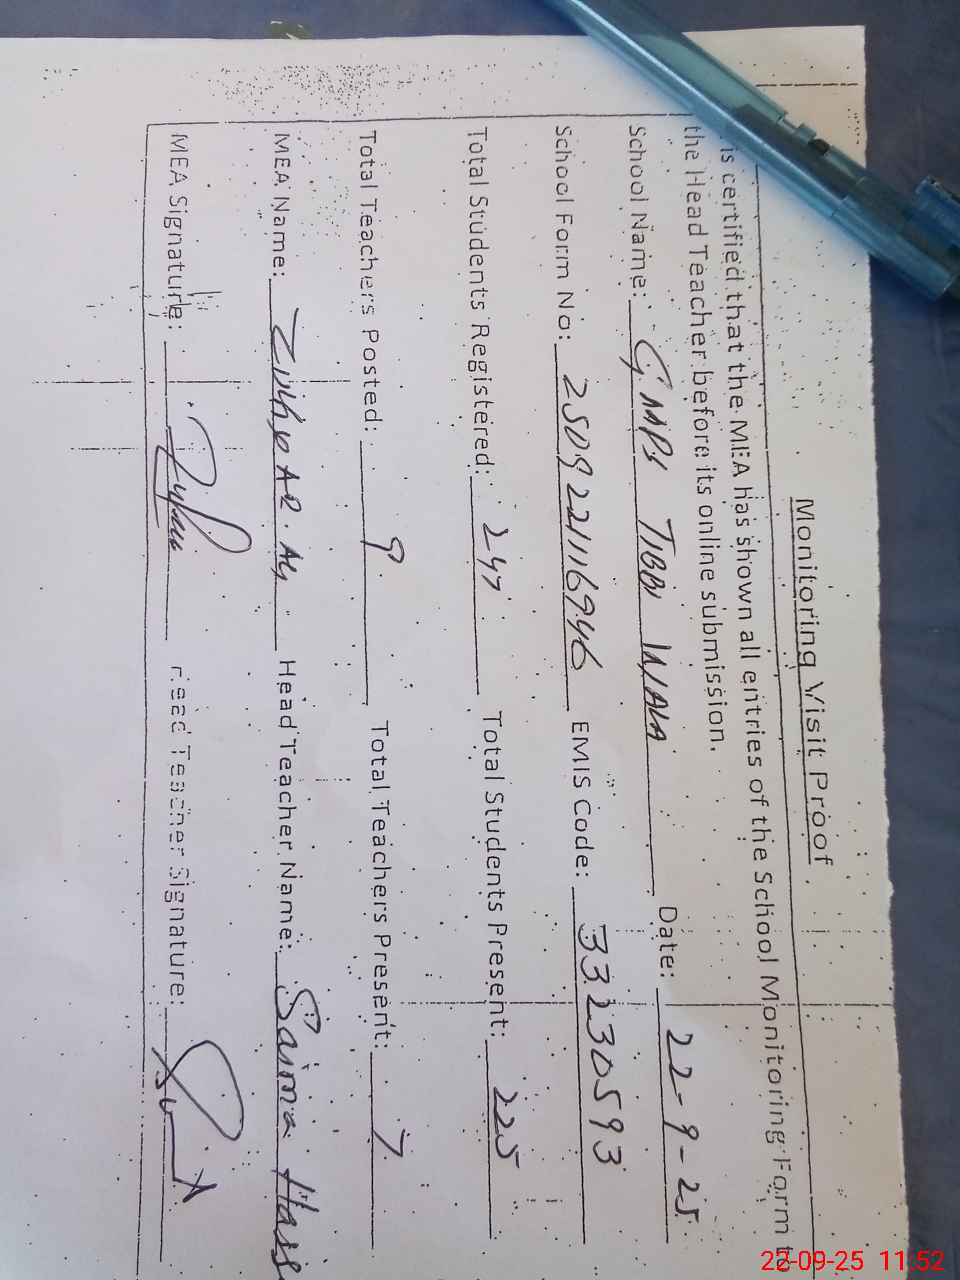 Monitoring Visit Proof
is certified that the MEA has shown all entries of the School Monitoring Form to
the Head Teacher before its online submission.
School Name: GMPS TIBBI WALA Date: 22-9-25
School Form No: 2509221116946 EMIS Code: 33230593
Total Students Registered: 247 Total Students Present: 225
Total Teachers Posted: 9 Total Teachers Present: 7
MEA Name: Head Teacher Name: Saima Hass
MEA Signature: Head Teacher Signature:
22-09-25 11:52